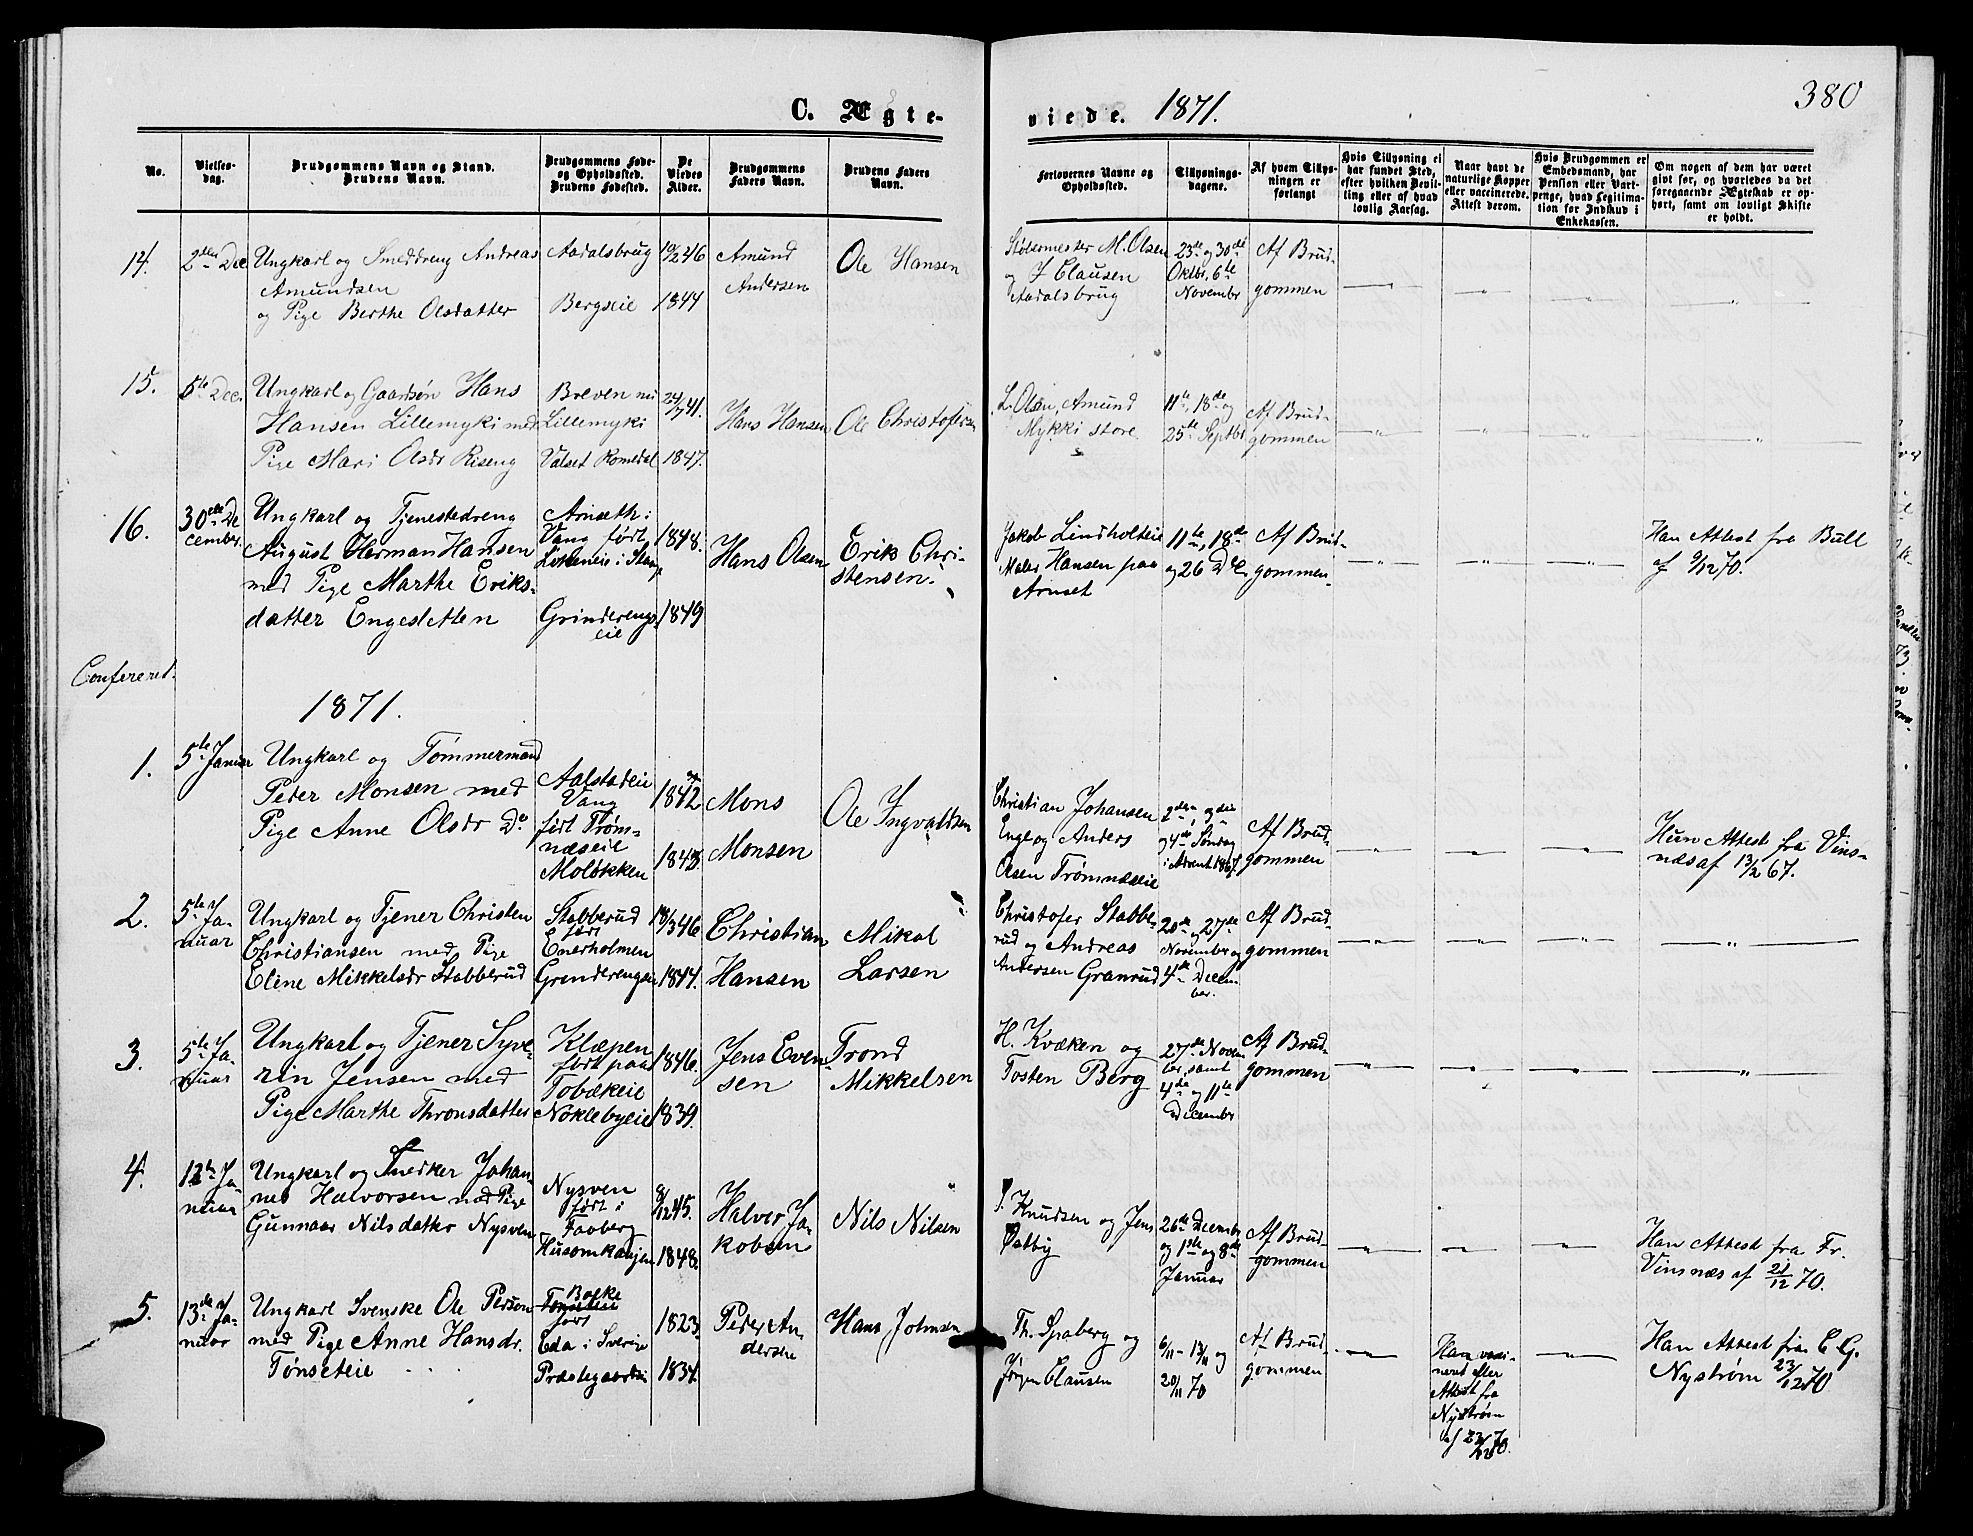 380
C. Ægte-
viede. 1871.
No.
Vielses-
dag.
Brudgommens Navn og Stand.
Brudens Navn.
Brudgommens Føde-
og Opholdssted.
Brudens Fødested.
De
Viedes
Alder.
Brudgommens
Faders Navn.
Brudens Faders
Navn.
Forlovernes Navne og
Opholdssted.
Tillysnings-
dagene.
Af hvem Tillys-
ningen er
forlangt
Hvis Tillysning ei
har fundet Sted,
efter hvilken Bevil-
ling eller af hvad
lovlig Aarsag.
Naar havt de
naturlige Kopper
eller vaccinerede.
Attest derom.
Hvis Brudgommen er
Embedsmand, har
Pension eller Vart-
penge, hvad Legitima-
tion for Indskud i
Enkekassen.
Om nogen af dem har været
gift før, og hvorledes da det
foregaaende Ægteskab er op-
hørt, samt om lovligt Skifte
er holdt.
14.
2den Dec
Ungkarl og Smeddreng Andreas
Amundsen
og Pige Berthe Olsdatter
Aadalsbrug
Bergseie
10/2 46
1844
Amund
Andersen
Ole Hansen
Støbermester M. Olsen
og J Clausen
Aadalsbrug
23de og 30de
Oktbr, 6te
Novembr
Af Brud-
gommen
15.
5te Dec.
Ungkarl og Gaardsøn Hans
Hansen Lillemyki med
Pige Mari Olsdr Riseng
Breven nu
Lillemyki
Valset Romedal
24/7 41.
1847.
Hans Hansen
Ole Christofersen
L. Olsen, Amund
Mykki store
11te, 18de og
25de Septbr
Af Brud-
gommen
16.
30te De
cember.
Ungkarl og Tjenestedreng
August Herman Hansen
med Pige Marthe Eriks-
datter Engesletten
Arnseth i
Vang født
i Stange
Grinderengs-
eie
1848.
1849
Hans Olsen
Erik Chri-
stensen.
Jakob Lindholteie
Maler Hansen paa
Arnset
11te, 18de
og 26 Dec
Af Brud-
gommen
Han Attest fra Bull
af 9/12 70.
Confereret.
1871.
1.
5te Januar
Ungkarl og Tømmermand
Peder Monsen med
Pige Anne Olsdr Do
Aalstadeie
Vang
født Trøm-
næseie
Moløkken
1842
1843
Mons
Monsen
Ole Ingvaldsen
Christian Johansen
Enge og Anders
Olsen Trømnæseie
2den, 3die
og 4de Søndag
i Advent 1867.
Af Brud-
gommen
Hun Attest fra Vins-
næs af 13/2 67.
2.
5te Ja-
nuar
Ungkarl og Tjener Christen
Christiansen med Pige
Eline Mikkelsdr Stabberud
Stabberud
født
Enerholmen
Grenderengseie
18/3 46
1844.
Christian
Hansen
Mikal
Larsen
Christofer Stabbe-
rud og Andreas
Andersen Granrud
20de og 27de
November og
4de Decem-
ber.
Af Brud-
gommen
3.
5te Ja-
nuar
Ungkarl og Tjener Syve-
rin Jensen med
Pige Marthe Thronsdatter
Klæpen
født paa
Tobækeie
Noklebyeie
1846.
1839.
Jens Even-
sen
Trond
Mikkelsen
H. Kvæken og
Tosten Berg
27de Novem-
ber, samt
4de og 11te
Decembr
Af Brud-
gommen
4.
12te Ja-
nuar
Ungkarl og Snedker Johan-
nes Halvorsen med Pige
Gunnaar Nilsdatter Nysven
Nysven
født i
Faaberg
8/12 45.
1848.
Halver Ja-
kobsen
Nils Nilsen
J. Knudsen og Jens
Østby
26de Decembr
og 1ste og 8de
Januar
Af Brud-
gommen
Han Attest fra Fr.
Vinsnæs af 21/12 70.
5.
13de Ja-
nuar
Ungkarl Svenske Ole Person
med Pige Anne Hansdr.
Tønseteie
Bakke
født
Eda i Sverige
Præstegaardseie
1823.
1834.
Peder An-
dersen
Hans Johnsen
Th. Spaberg og
Jørgen Clausen
6/11 - 13/11 og
20/11 70
Af Brud-
gommen
Han vaxi-
neret efter
Attest fra
Nystrøm
af 23/12 70.
Han Attest fra C. G.
Nystrøm 23/12 70